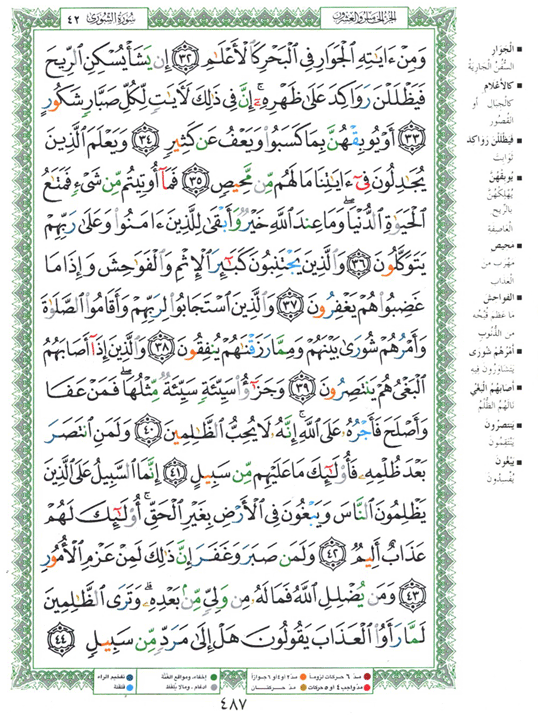 سُورَةُ الشُّورَىٰ ٤٢
الجزء الخامس والعشرون
وَمِنْ ءَايَٰتِهِ ٱلْجَوَارِ فِى ٱلْبَحْرِ كَٱلْأَعْلَٰمِ ٣٢ إِن يَشَأْ يُسْكِنِ ٱلرِّيحَ
فَيَظْلَلْنَ رَوَاكِدَ عَلَىٰ ظَهْرِهِۦٓ ۚ إِنَّ فِى ذَٰلِكَ لَءَايَٰتٍ لِّكُلِّ صَبَّارٍ شَكُورٍ
٣٣ أَوْ يُوبِقْهُنَّ بِمَا كَسَبُوا۟ وَيَعْفُ عَن كَثِيرٍ ٣٤ وَيَعْلَمَ ٱلَّذِينَ
يُجَٰدِلُونَ فِىٓ ءَايَٰتِنَا مَا لَهُم مِّن مَّحِيصٍ ٣٥ فَمَآ أُوتِيتُم مِّن شَىْءٍ فَمَتَٰعُ
ٱلْحَيَوٰةِ ٱلدُّنْيَا ۖ وَمَا عِندَ ٱللَّهِ خَيْرٌ وَأَبْقَىٰ لِلَّذِينَ ءَامَنُوا۟ وَعَلَىٰ رَبِّهِمْ
يَتَوَكَّلُونَ ٣٦ وَٱلَّذِينَ يَجْتَنِبُونَ كَبَٰٓئِرَ ٱلْإِثْمِ وَٱلْفَوَٰحِشَ وَإِذَا مَا
غَضِبُوا۟ هُمْ يَغْفِرُونَ ٣٧ وَٱلَّذِينَ ٱسْتَجَابُوا۟ لِرَبِّهِمْ وَأَقَامُوا۟ ٱلصَّلَوٰةَ
وَأَمْرُهُمْ شُورَىٰ بَيْنَهُمْ وَمِمَّا رَزَقْنَٰهُمْ يُنفِقُونَ ٣٨ وَٱلَّذِينَ إِذَآ أَصَابَهُمُ
ٱلْبَغْىُ هُمْ يَنتَصِرُونَ ٣٩ وَجَزَٰٓؤُا۟ سَيِّئَةٍ سَيِّئَةٌ مِّثْلُهَا ۖ فَمَنْ عَفَا
وَأَصْلَحَ فَأَجْرُهُۥ عَلَى ٱللَّهِ ۚ إِنَّهُۥ لَا يُحِبُّ ٱلظَّٰلِمِينَ ٤٠ وَلَمَنِ ٱنتَصَرَ
بَعْدَ ظُلْمِهِۦ فَأُو۟لَٰٓئِكَ مَا عَلَيْهِم مِّن سَبِيلٍ ٤١ إِنَّمَا ٱلسَّبِيلُ عَلَى ٱلَّذِينَ
يَظْلِمُونَ ٱلنَّاسَ وَيَبْغُونَ فِى ٱلْأَرْضِ بِغَيْرِ ٱلْحَقِّ ۚ أُو۟لَٰٓئِكَ لَهُمْ
عَذَابٌ أَلِيمٌ ٤٢ وَلَمَن صَبَرَ وَغَفَرَ إِنَّ ذَٰلِكَ لَمِنْ عَزْمِ ٱلْأُمُورِ
٤٣ وَمَن يُضْلِلِ ٱللَّهُ فَمَا لَهُۥ مِن وَلِىٍّ مِّنۢ بَعْدِهِۦ ۗ وَتَرَى ٱلظَّٰلِمِينَ
لَمَّا رَأَوُا۟ ٱلْعَذَابَ يَقُولُونَ هَلْ إِلَىٰ مَرَدٍّ مِّن سَبِيلٍ ٤٤
■ الْجَوَارِ
السُّفُنُ الْجَارِيَةُ
■ كَالأعْلامِ
كالجبال أو
القُصُور
■ فَيَظْلَلْنَ رَوَاكِدَ
ثَوَابِتَ
■ يُوبِقْهُنَّ
يُهْلِكْهُنَّ
بالرِّيح
العَاصِفة
■ مَحِيصٍ
مَهْرَب من
العذاب
■ الفَوَاحِشَ
ما عَظُمَ قُبْحُه
من الذُّنُوب
■ أَمْرُهُمْ شُورَى
يتشاورُون فيه
■ أَصَابَهُمُ الْبَغْيُ
نَالَهُمُ الظُّلْمُ
■ يَنتَصِرُونَ
يَنْتَقِمُونَ
■ يَبْغُونَ
يُفْسِدُونَ
مدّ ٦ حركات لزوماً مدّ ٢ أو ٤ أو ٦ جوازاً إخفاء، ومواقع الغُنَّة تفخيم الراء
مدّ واجب ٤ أو ٥ حركات مدّ حركتان ادغام، ومالا يُلفظ قلقلة
٤٨٧